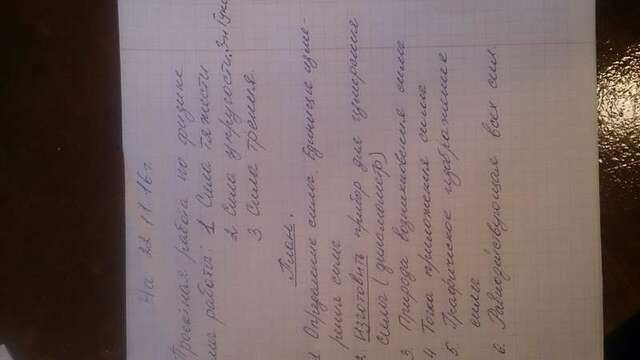 7а 22.11.16г.
Проектная работа по физике
работы: 1 Сила тяжести
2 Сила упругости, З-н Гука
3 Сила трения.
План.
1 Определение силы. Единицы изме-
рения силы
2. Изготовить прибор для измерения
силы (динамометр)
3 Природа возникновения силы
4 Точка приложения силы
5. Графическое изображение
силы
6. Равнодействующая всех сил.